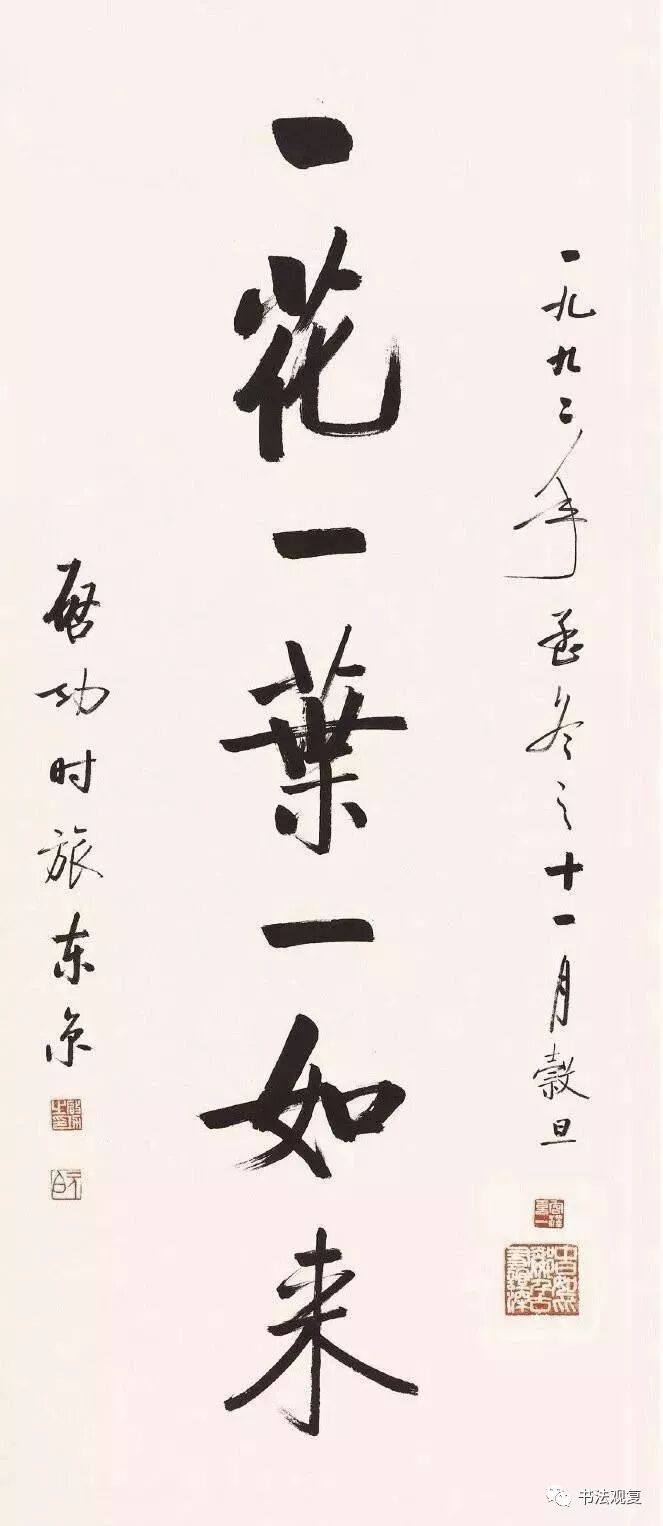 一九九二年孟冬之十一月穀旦
一花一葉一如来
启功时旅东京
书法观复